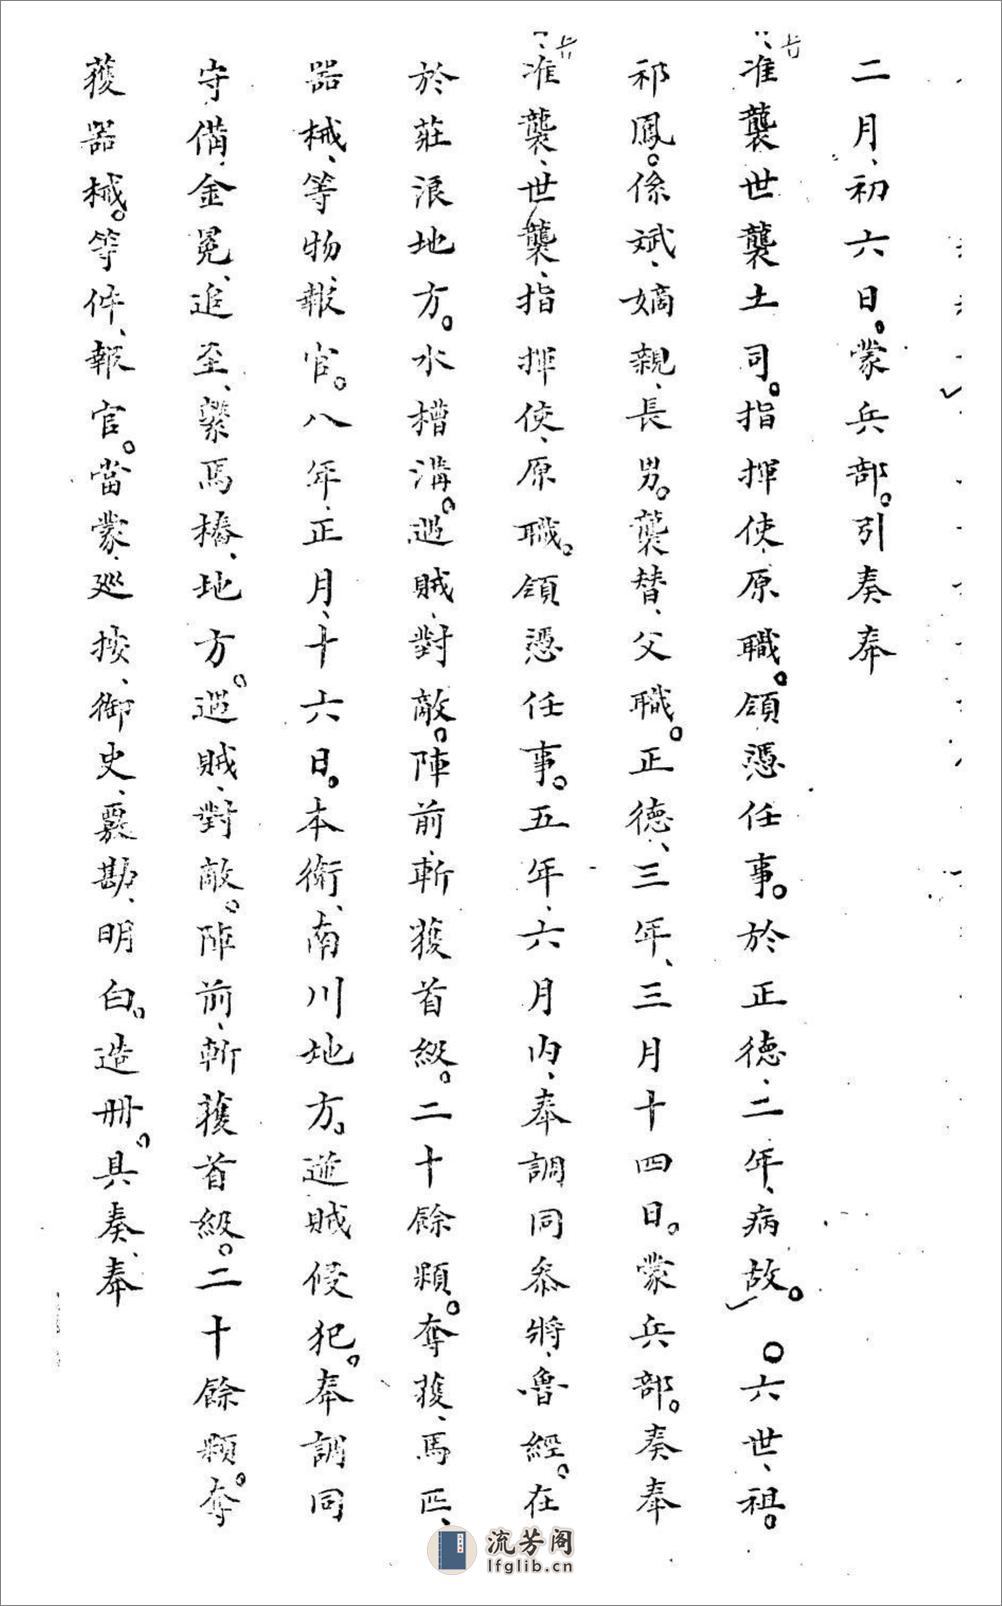 二月、初六日。蒙兵部。引奏奉
旨、准襲、世襲土司。指揮使、原職。領憑任事。於正德、二年、病故。○六世、祖。
祁鳳。係斌、嫡親、長男。襲替、父職。正德、三年、三月十四日。蒙兵部。奏奉
旨、准襲、世襲、指揮使、原職。領憑任事。五年、六月內、奉調同叅將、魯經。在
於莊浪地方。水槽溝。遇賊、對敵。陣前、斬獲首級。二十餘顆。奪獲、馬匹、
器械、等物、報官。八年、正月、十六日。本衛、南川地方。遊賊侵犯。奉調同
守備、金冕、追至、繫馬樁、地方。遇賊、對敵。陣前、斬獲首級。二十餘顆。奪
獲器械。等件、報官。當蒙、巡按、御史、覈勘、明白。造冊。具奏、奉
流芳阁
lfglib.cn